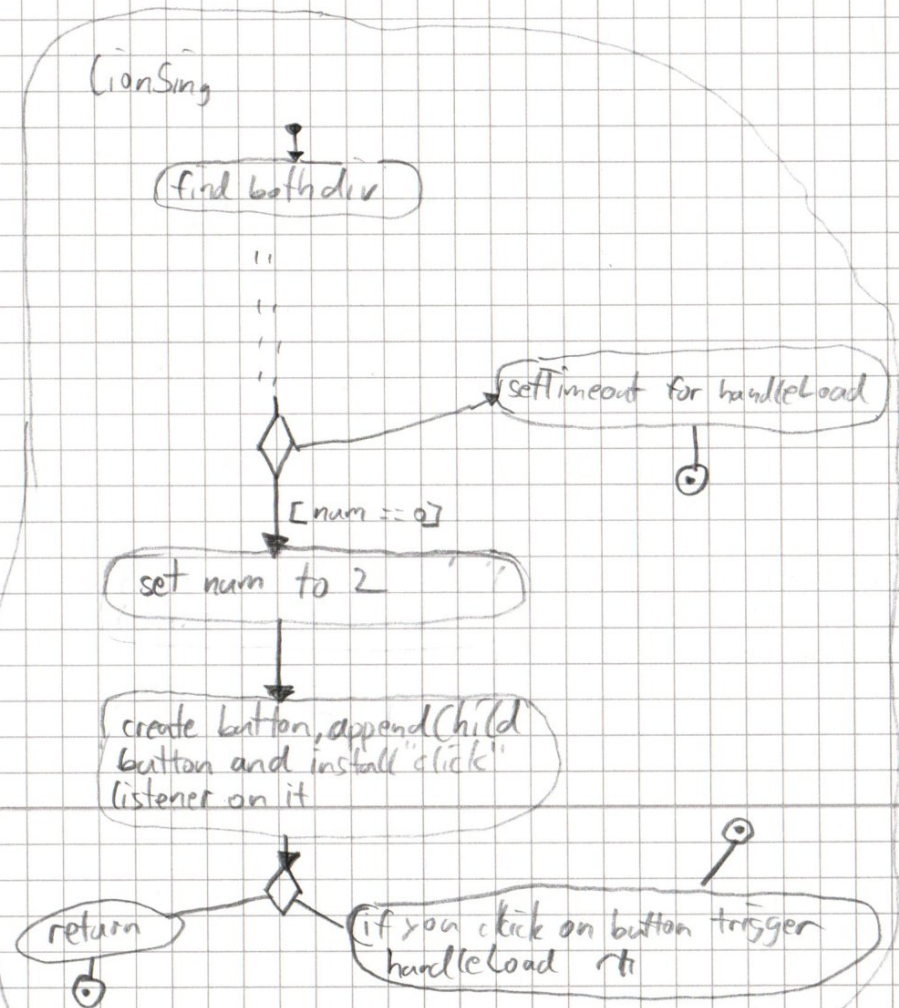 LionSing
find both div
setTimeout for handleLoad
[num == 0]
set num to 2
create button, appendChild
button and install "click"
listener on it
return
if you click on button trigger
handleLoad